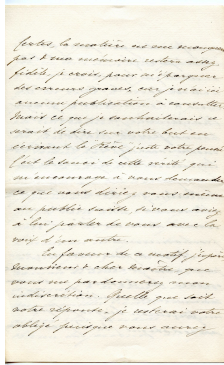 Certes, la matière est me manquera
pas & ma mémoire restera assez
fidèle je crois, pour m'épargner
des erreurs graves, car je n'ai ici
aucune publication à consulter
Mais ce que je souhaiterais ce
serait de dire sur votre but en
le vrai, juste votre pensée
C'est le souci de cette vérité qui
m'encourage à vous demander
ce que vous diriez vous même
au public si vous aviez
à lui parler de vous avec la
voix d'un autre.
En faveur de ce motif, j'espère
Monsieur & cher Maître, que
vous me pardonnerez mon
indiscrétion. Quelle que soit
votre réponse, je resterai votre
obligé puisque vous aurez